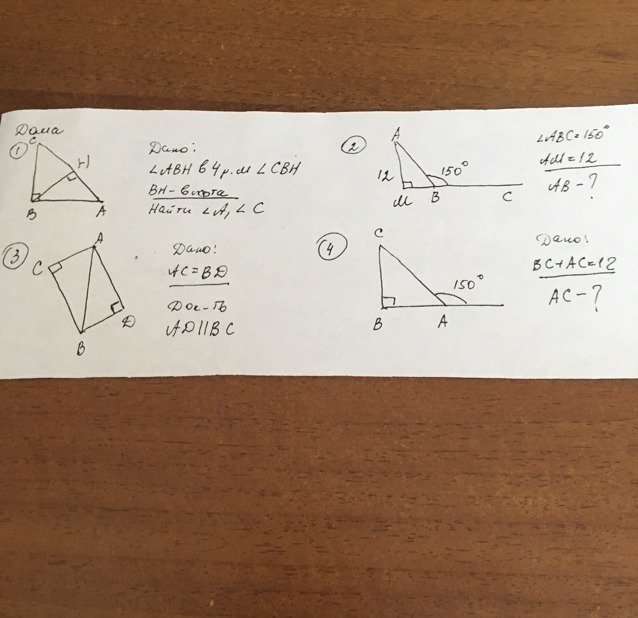 Дома
① C
H
B A
Дано:
∠ABH в 4 р. м ∠CBH
BH - высота
Найти ∠A, ∠C
② A
12 150°
M B C
∠ABC = 150°
AM = 12
AB - ?
③ A
C
D
B
Дано:
AC = BD
Док-ть
AD || BC
④ C
150°
B A
Дано:
BC + AC = 12
AC - ?